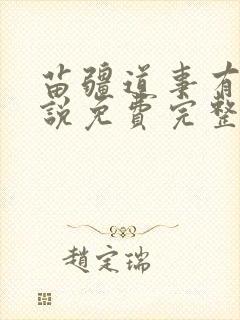 苗疆道事有
說免費完整
趙定瑞